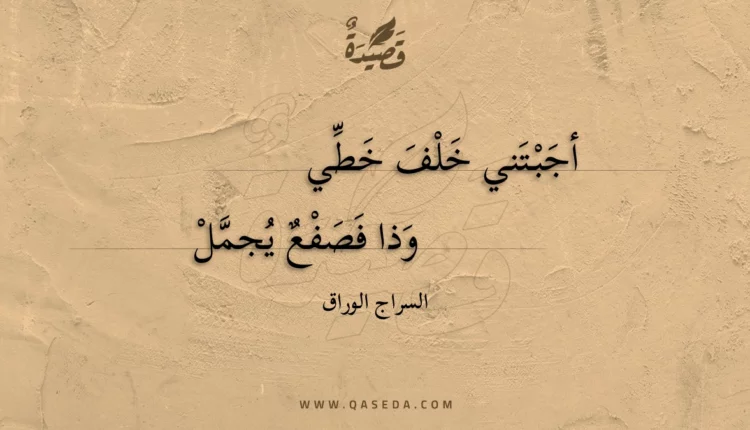 قَصِيدَةٌ
أجَبْتَني خَلْفَ خَطِّي
وَذا فَصَفْعٌ يُجمَّلْ
السراج الوراق
WWW.QASEDA.COM